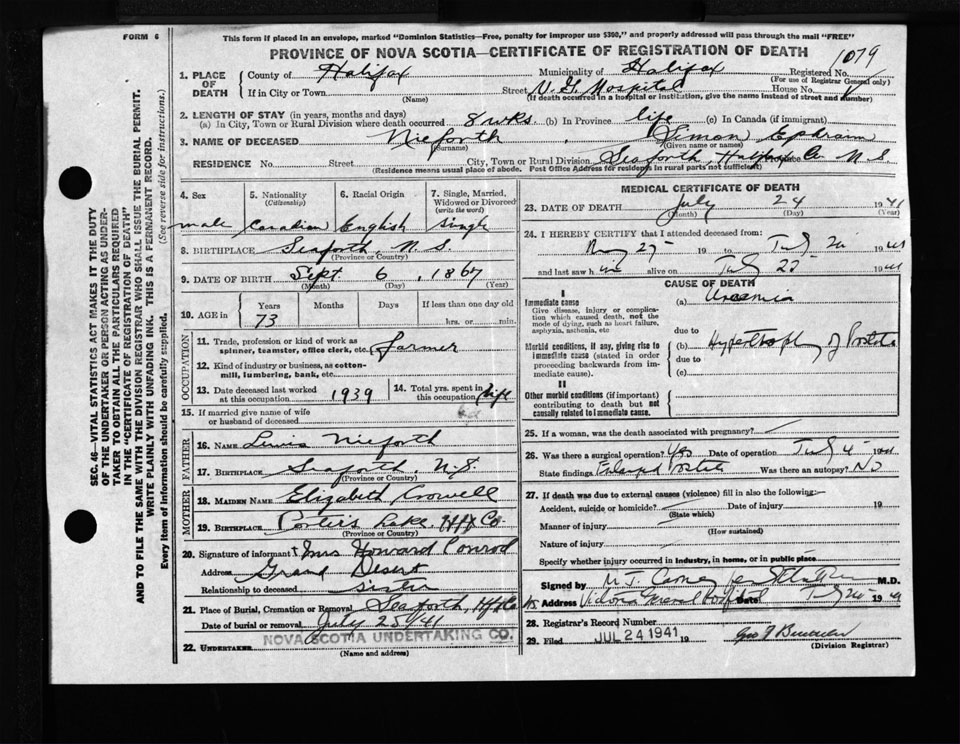 FORM 6
This form if placed in an envelope, marked "Dominion Statistics—Free, penalty for improper use $300," and properly addressed will pass through the mail "FREE"
PROVINCE OF NOVA SCOTIA—CERTIFICATE OF REGISTRATION OF DEATH
1079
1. PLACE OF DEATH
County of Halifax Municipality of Halifax Registered No.
(For use of Registrar General only)
If in City or Town (Name) Street V. G. Hospital House No.
(If death occurred in a hospital or institution, give the name instead of street and number)
2. LENGTH OF STAY (in years, months and days)
(a) In City, Town or Rural Division where death occurred 8 wks. (b) In Province life (c) In Canada (if immigrant)
3. NAME OF DECEASED Nieforth, Simon Ephraim
(Surname) (Given name or names)
RESIDENCE No. Street City, Town or Rural Division Seaforth, Halifax Co. N.S.
(Residence means usual place of abode. Post Office Address for residents in rural parts not sufficient)
4. Sex
male
5. Nationality (Citizenship)
Canadian
6. Racial Origin
English
7. Single, Married, Widowed or Divorced (write the word)
Single
8. BIRTHPLACE Seaforth, N.S.
(Province or Country)
9. DATE OF BIRTH Sept. 6, 1867
(Month) (Day) (Year)
10. AGE in Years Months Days If less than one day old
73 hrs. or min.
OCCUPATION
11. Trade, profession or kind of work as spinner, teamster, office clerk, etc. farmer
12. Kind of industry or business, as cotton-mill, lumbering, bank, etc.
13. Date deceased last worked at this occupation 1939
14. Total yrs. spent in this occupation life
15. If married give name of wife or husband of deceased
FATHER
16. NAME Lewis Nieforth
17. BIRTHPLACE Seaforth, N.S.
(Province or Country)
MOTHER
18. MAIDEN NAME Elizabeth Crowell
19. BIRTHPLACE Porters Lake, Hfx Co
(Province or Country)
20. Signature of informant Mrs Howard Conrod
Address Grand Desert
Relationship to deceased sister
21. Place of Burial, Cremation or Removal Seaforth, Hfx Co
Date of burial or removal July 25/41
22. UNDERTAKER NOVA SCOTIA UNDERTAKING CO.
(Name and address)
MEDICAL CERTIFICATE OF DEATH
23. DATE OF DEATH July 24 1941
(Month) (Day) (Year)
24. I HEREBY CERTIFY that I attended deceased from:
19 to 1941
and last saw h im alive on 1941
CAUSE OF DEATH
I
Immediate cause
Give disease, injury or complication which caused death, not the mode of dying, such as heart failure, asphyxia, asthenia, etc
(a) Uraemia
due to
Morbid conditions, if any, giving rise to immediate cause (stated in order proceeding backwards from immediate cause).
(b) Hypertrophy of Prostate
due to
(c)
II
Other morbid conditions (if important) contributing to death but not causally related to immediate cause.
25. If a woman, was the death associated with pregnancy?
26. Was there a surgical operation? Yes Date of operation July 4 1941
State findings Enlarged Prostate Was there an autopsy? No
27. If death was due to external causes (violence) fill in also the following:—
Accident, suicide or homicide? Date of injury 19
(State which)
Manner of injury
(How sustained)
Nature of injury
Specify whether injury occurred in industry, in home, or in public place
Signed by M.D.
Address Victoria General Hospital Date 1941
28. Registrar's Record Number
29. Filed JUL 24 1941 19
(Division Registrar)
SEC. 46—VITAL STATISTICS ACT MAKES IT THE DUTY
OF THE UNDERTAKER OR PERSON ACTING AS UNDER-
TAKER TO OBTAIN ALL THE PARTICULARS REQUIRED
IN THE "CERTIFICATE OF REGISTRATION OF DEATH"
AND TO FILE THE SAME WITH THE DIVISION REGISTRAR WHO SHALL ISSUE THE BURIAL PERMIT.
WRITE PLAINLY WITH UNFADING INK. THIS IS A PERMANENT RECORD.
Every item of information should be carefully supplied.
(See reverse side for instructions.)